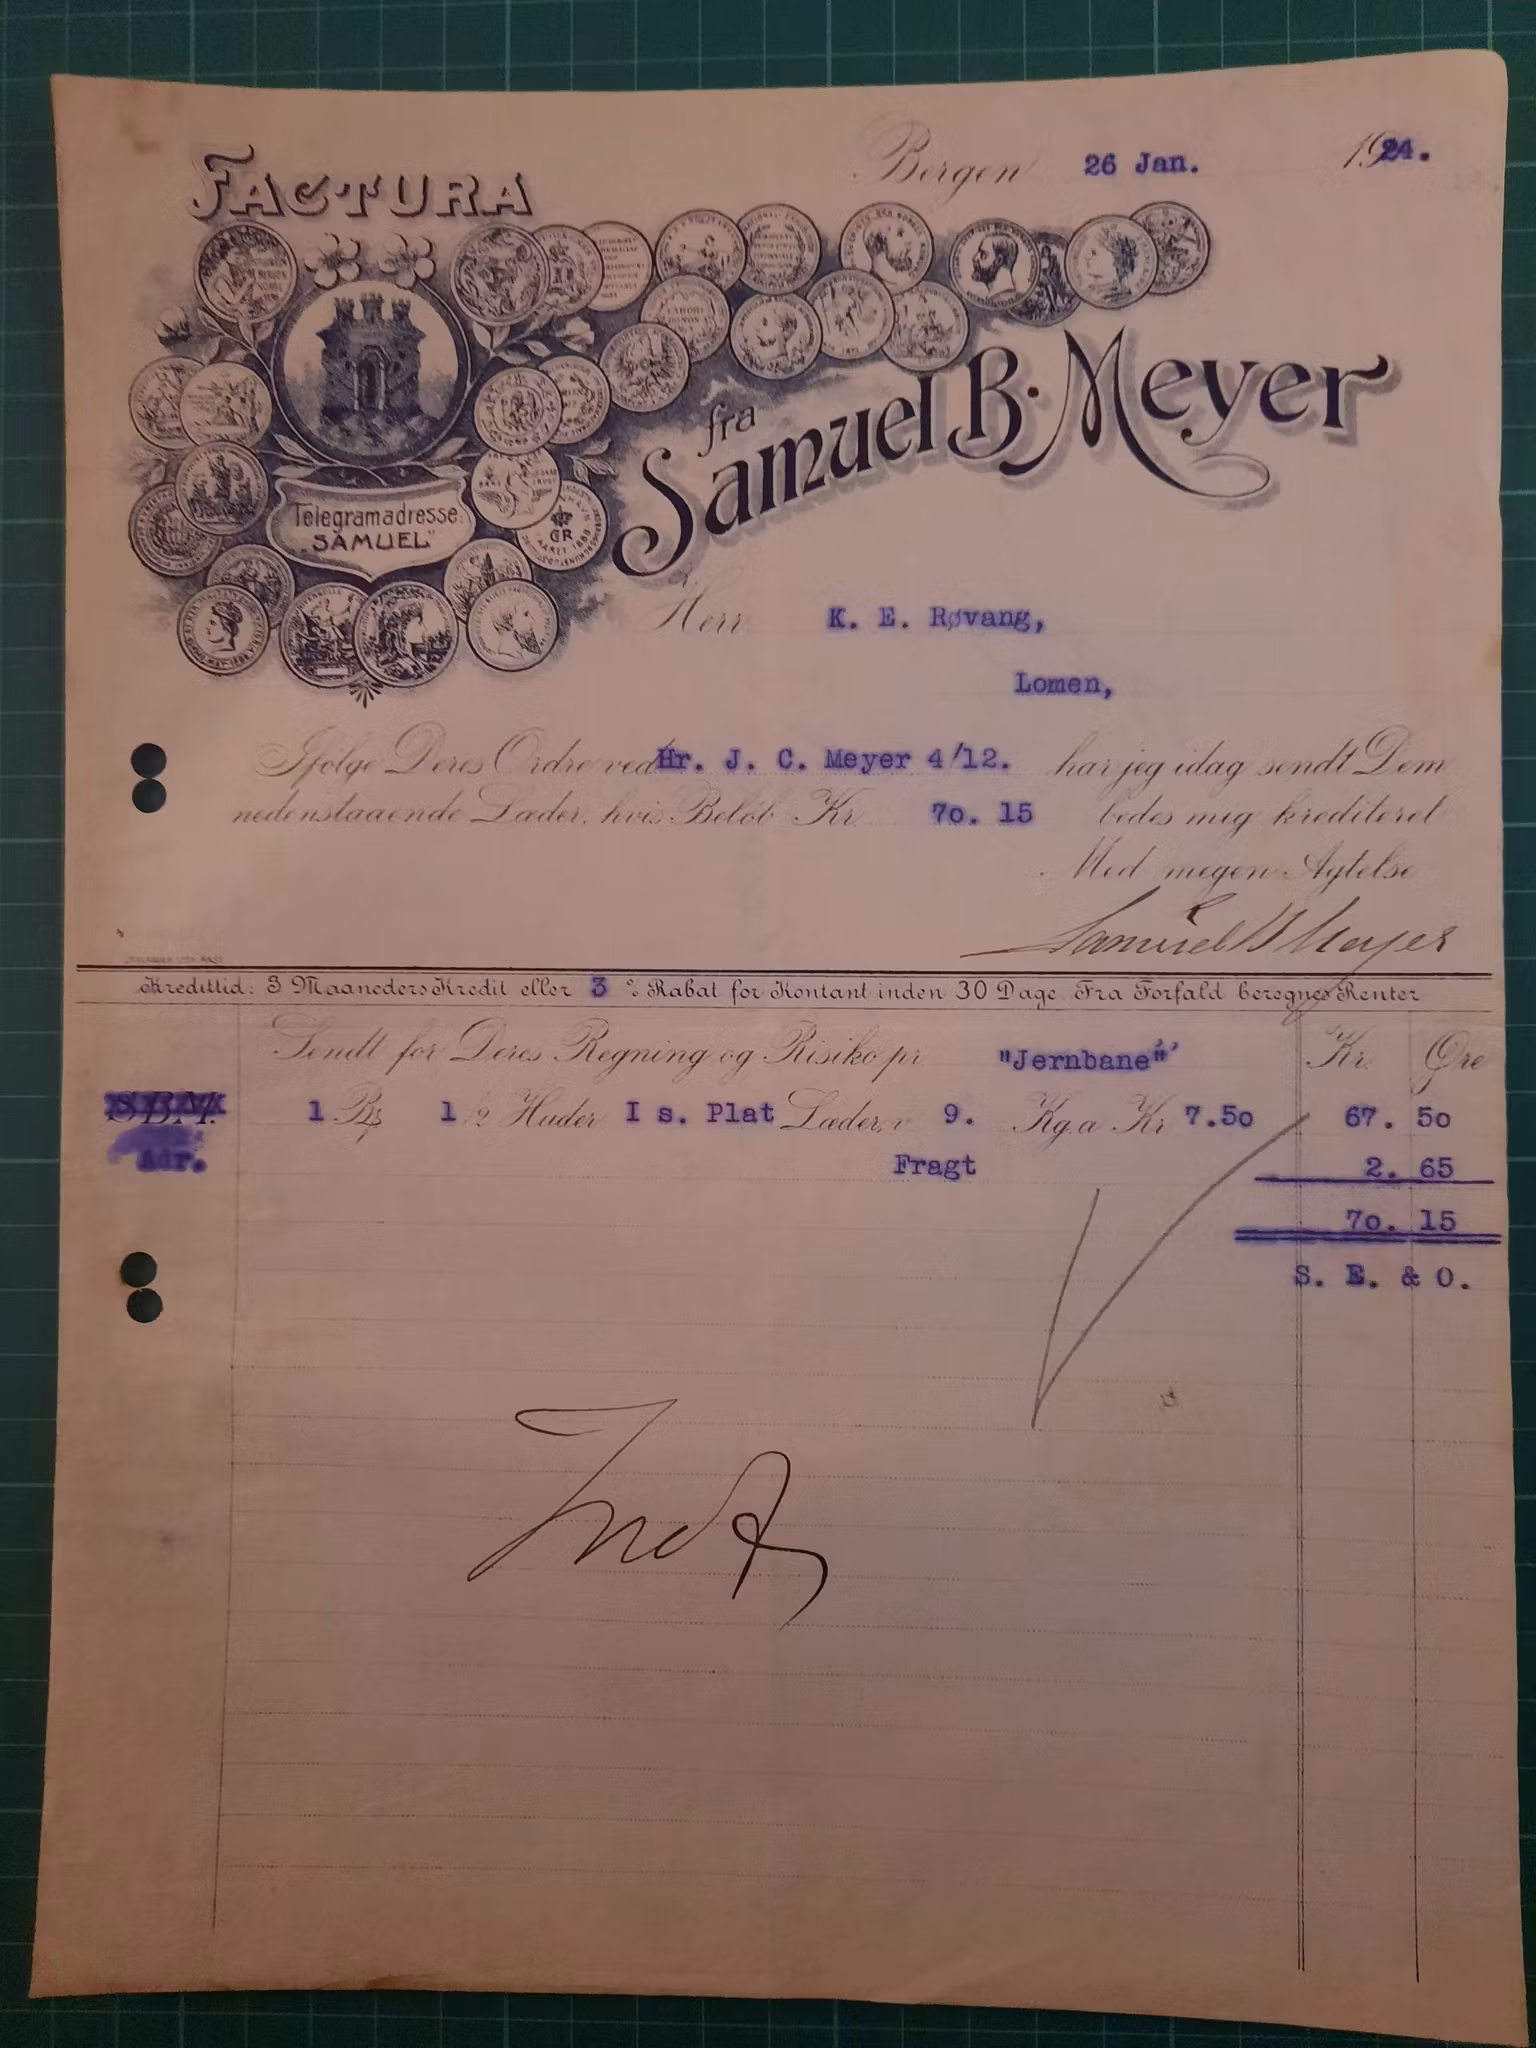 FACTURA
Bergen 26 Jan. 1924.
fra
Samuel B. Meyer
Telegramadresse:
"SAMUEL"
Herr K. E. Røvang,
Lomen,
Ifölge Deres Ordre ved Hr. J. C. Meyer 4/12. har jeg idag sendt Dem
nedenstaaende Læder, hvis Belöb Kr. 70. 15 bedes mig krediteret
Med megen Agtelse
Samuel B Meyer
Kredittid: 3 Maaneders Kredit eller 3 % Rabat for Kontant inden 30 Dage. Fra Forfald beregnes Renter
Sendt for Deres Regning og Risiko pr. "Jernbane" Kr. Øre
SBM. 1 1/2 Huder I s. Plat Læder, v. 9. Kg. a Kr. 7.50 67. 50
Adr. Fragt 2. 65
70. 15
S. E. & O.